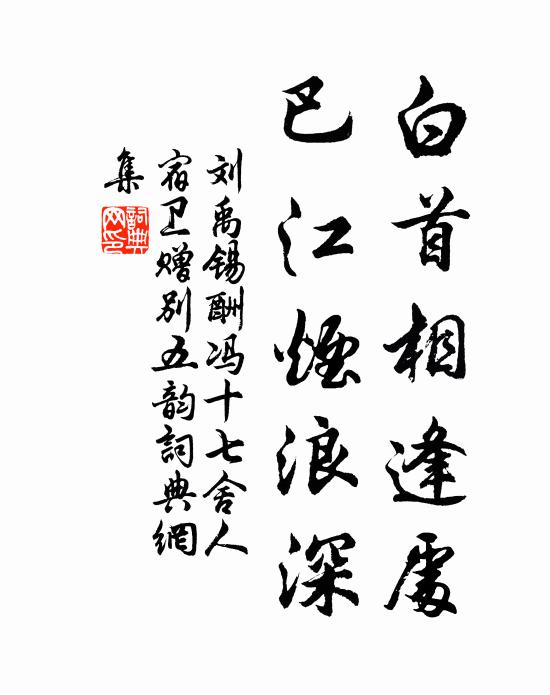 白首相逢處
巴江煙浪深
刘禹锡酬冯十七舍人
宿卫赠别五韵詞典網
集
詞典
网印